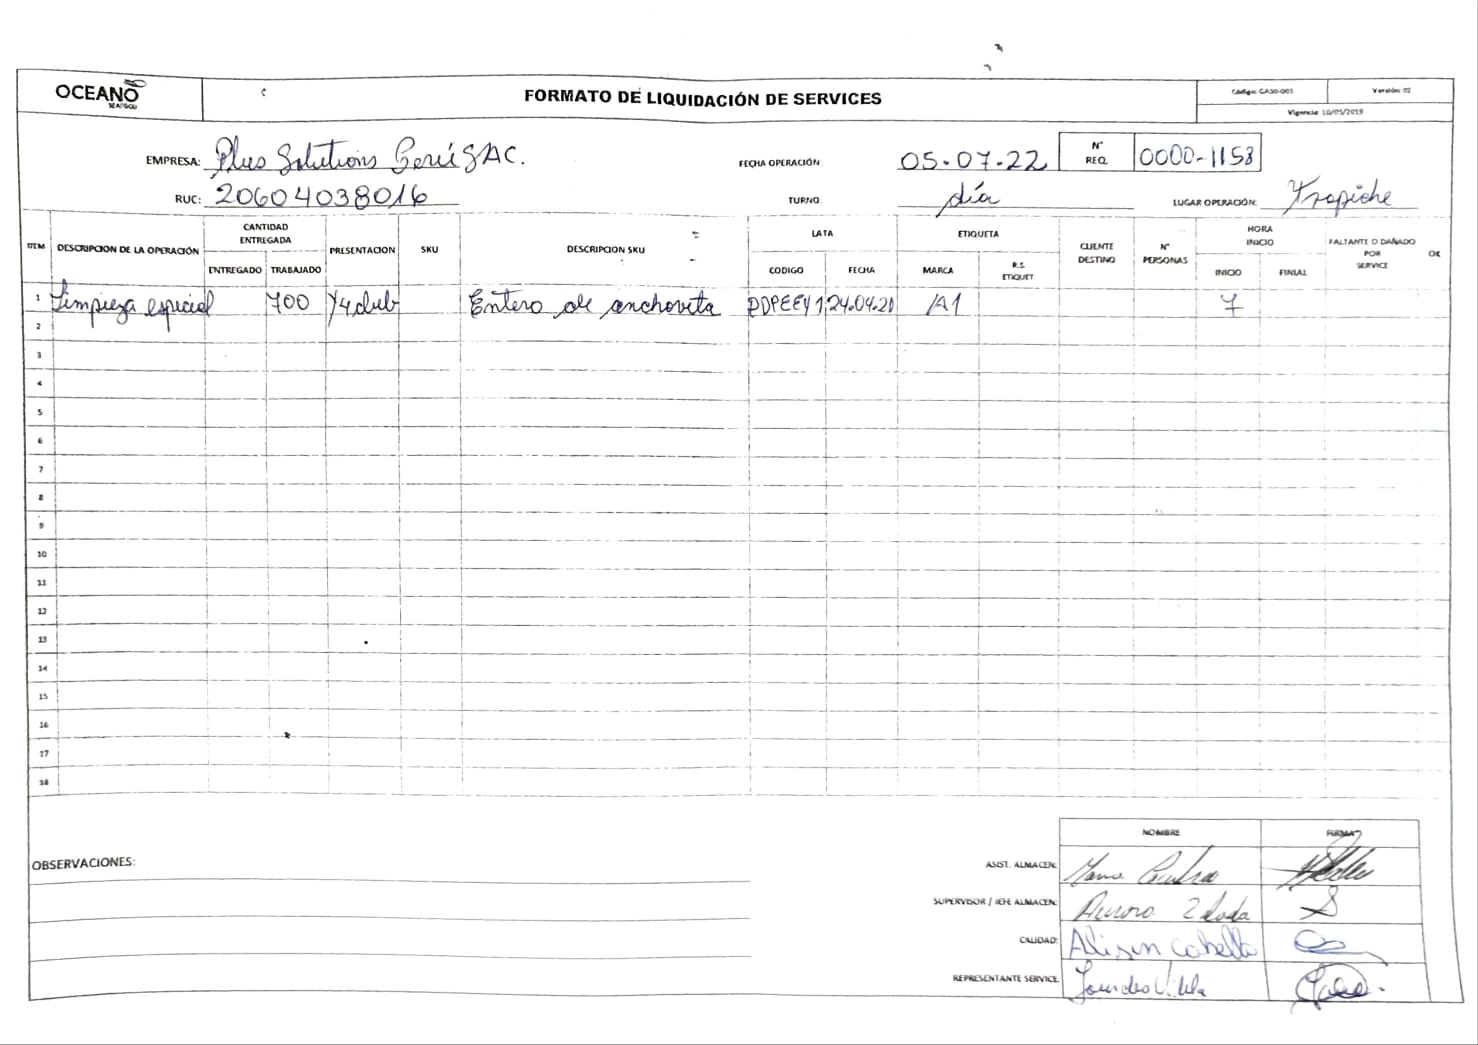 OCEANO
SEAFOOD
FORMATO DE LIQUIDACIÓN DE SERVICES
Código: GA30-003
Versión: 02
Vigencia: 10/05/2019
EMPRESA: Plus Solutions Perú SAC.
FECHA OPERACIÓN: 05-07-22
N° REQ. 0000-1158
RUC: 20604038016
TURNO: día
LUGAR OPERACIÓN: Trapiche
ITEM DESCRIPCION DE LA OPERACIÓN CANTIDAD ENTREGADA PRESENTACION SKU DESCRIPCION SKU LATA ETIQUETA CLIENTE DESTINO N° PERSONAS HORA INICIO FALTANTE O DAÑADO POR SERVICE OK
ENTREGADO TRABAJADO CODIGO FECHA MARCA R.S. ETIQUET INICIO FINIAL
1 Limpieza especial 700 1/4 club Entero de anchoveta PDPEEY1 24.04.20 A1 7
2
3
4
5
6
7
8
9
10
11
12
13
14
15
16
17
18
NOMBRE FIRMA
OBSERVACIONES:
ASIST. ALMACEN:
SUPERVISOR / JEFE ALMACEN: Aurora
CALIDAD: Alison Cabello
REPRESENTANTE SERVICE: Lourdes Vilela